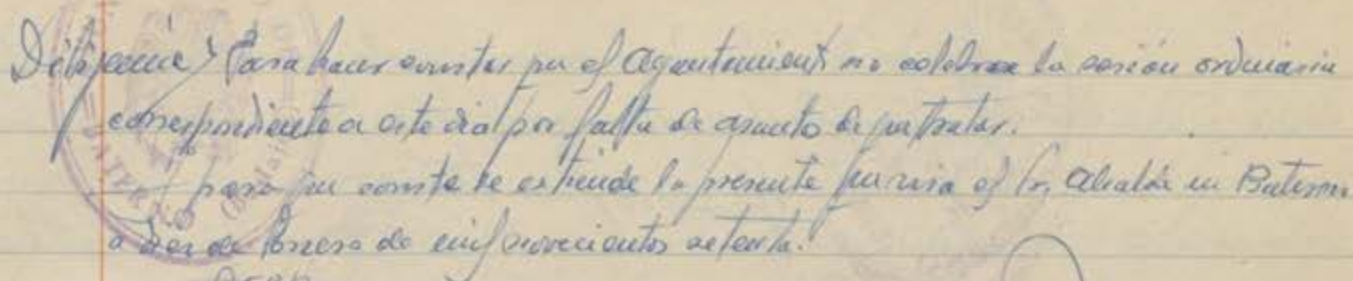 Diligencia) Para hacer constar que el Ayuntamiento no celebra la sesión ordinaria
correspondiente a este día por falta de asunto de que tratar.
Y para que conste se extiende la presente que visa el Sr. Alcalde en Baterno
a de Enero de mil novecientos setenta.